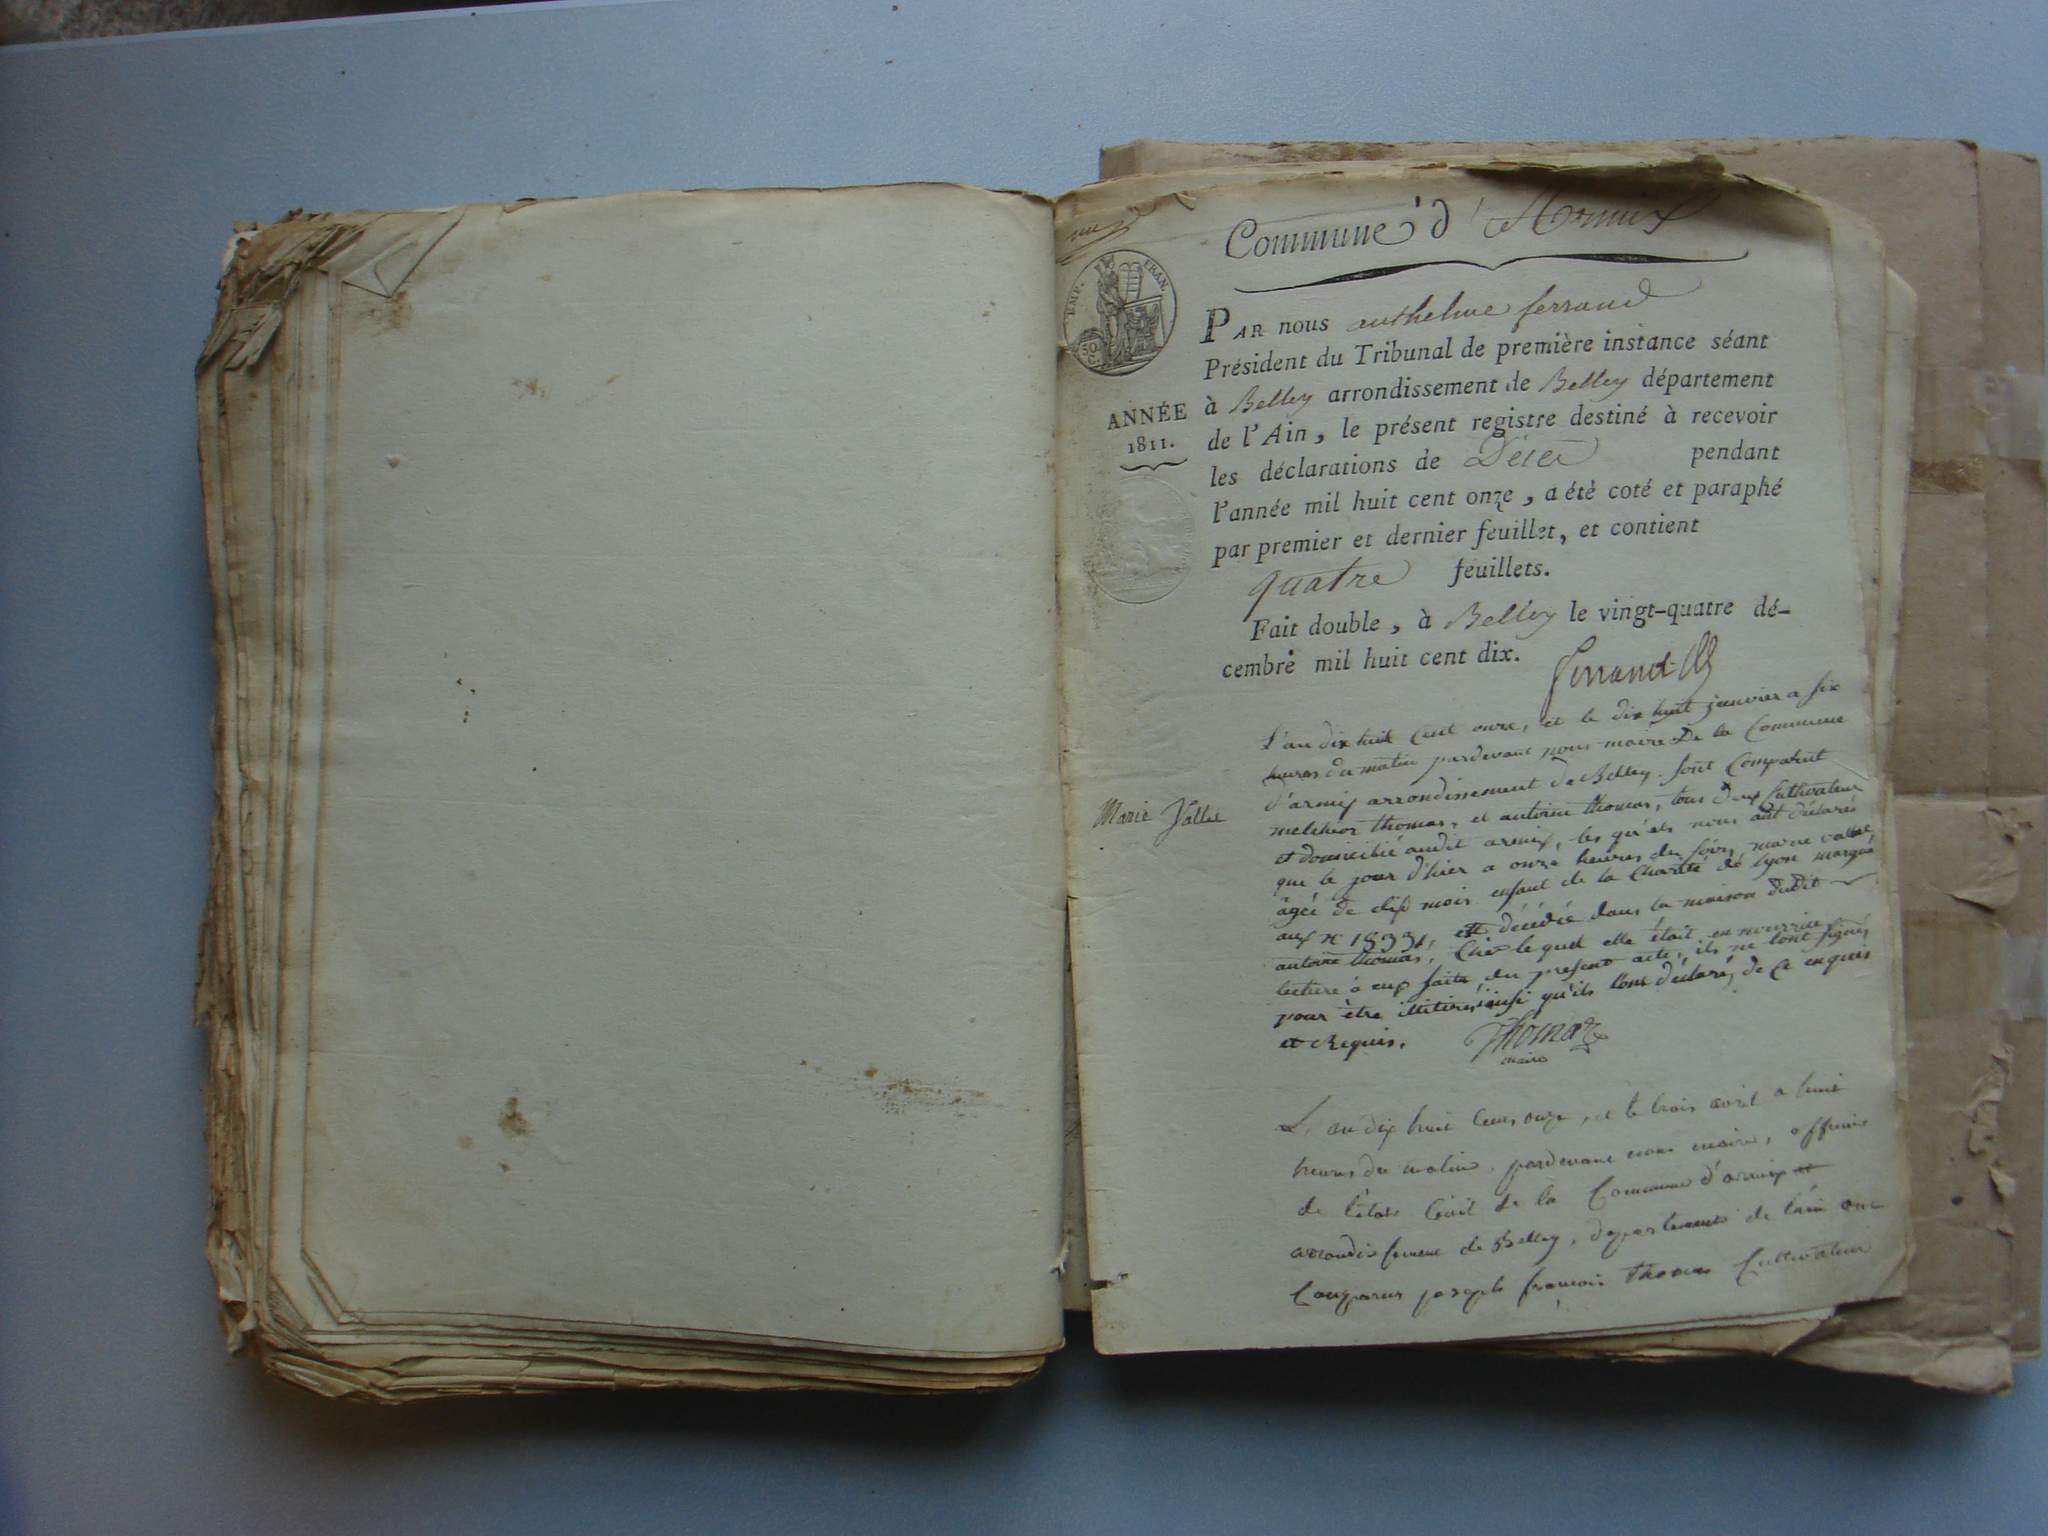 Commune d'Armix
EMP. FRAN.
50 C.
PAR nous anthelme ferrand
Président du Tribunal de première instance séant
ANNÉE
1811.
à Belley arrondissement de Belley département
de l'Ain, le présent registre destiné à recevoir
les déclarations de Décès pendant
l'année mil huit cent onze, a été coté et paraphé
par premier et dernier feuillet, et contient
quatre feuillets.
Fait double, à Belley le vingt-quatre dé-
cembre mil huit cent dix.
Ferrand
L'an dix huit cent onze, et le dix huit janvier a six
heures du matin pardevant nous maire De la Commune
d'armix arrondissement de Belley. sont Comparut
Marie Vallet
melchior thomas, et antoine thomas, tous deux Cultivateur
et domicilié audit armix, les qu'els nous ont déclarés
que le jour d'hier a onze heures du soir, marie vallet,
âgée de dix mois enfant de la Charité de lyon marqué
aux n° 1833, est décédée dans la maison dudit
antoine thomas, Chez lequel elle était en nourrice,
lecture à eux faite du présent acte, ils ne l'ont signés
pour être illitérés ainsi qu'ils l'ont déclaré, de Ce enquis
et Requis.
Thomas
maire
L'an dix huit Cent onze, et le trois avril a huit
heures du matin, pardevant nous maire, officier
de l'état Civil de la Commune d'armix
arrondissement de Belley, département de l'ain ont
Comparus joseph françois thomas Cultivateur